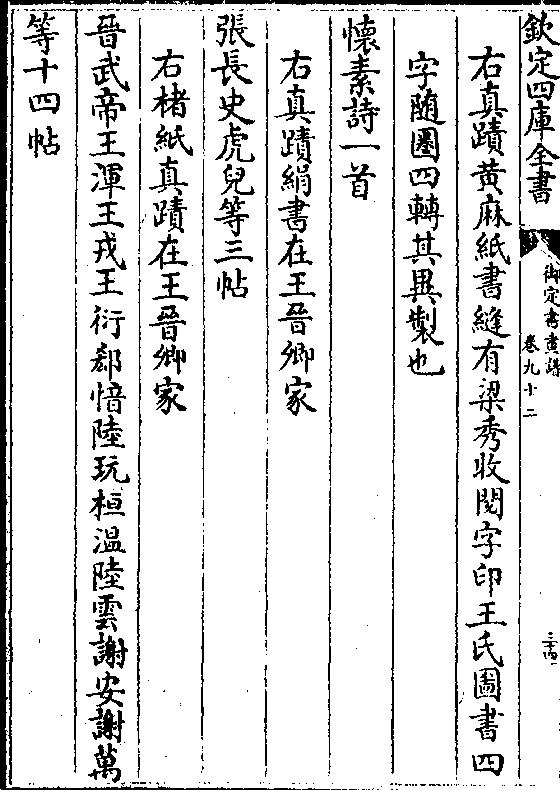 欽定四庫全書
御定書畫譜
卷九十二
三十四
右真蹟黄麻紙書縫有梁秀收閱字印王氏圖書四
字隨圈四轉其異製也
懐素詩一首
右真蹟絹書在王晉卿家
張長史虎兒等三帖
右楮紙真蹟在王晉卿家
晉武帝王渾王戎王衍郗愔陸玩桓温陸雲謝安謝萬
等十四帖